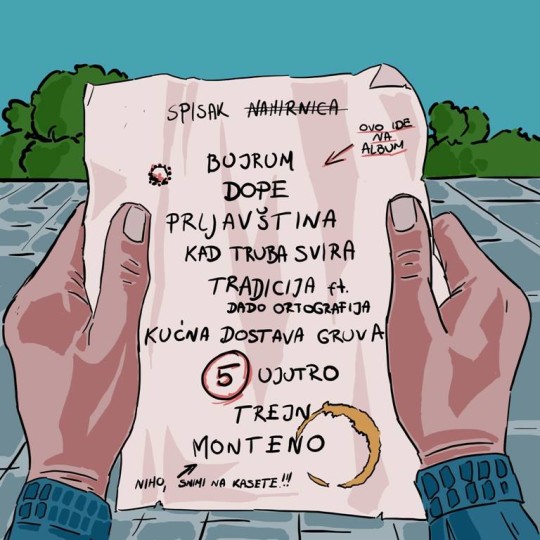 SPISAK NAMIRNICA
OVO IDE
NA
ALBUM
BUJRUM
DOPE
PRLJAVŠTINA
KAD TRUBA SVIRA
TRADICIJA ft.
DADO ORTOGRAFIJA
KUĆNA DOSTAVA GRUVA
5 UJUTRO
TREJN
MONTENO
NIHO, SNIMI NA KASETE!!!